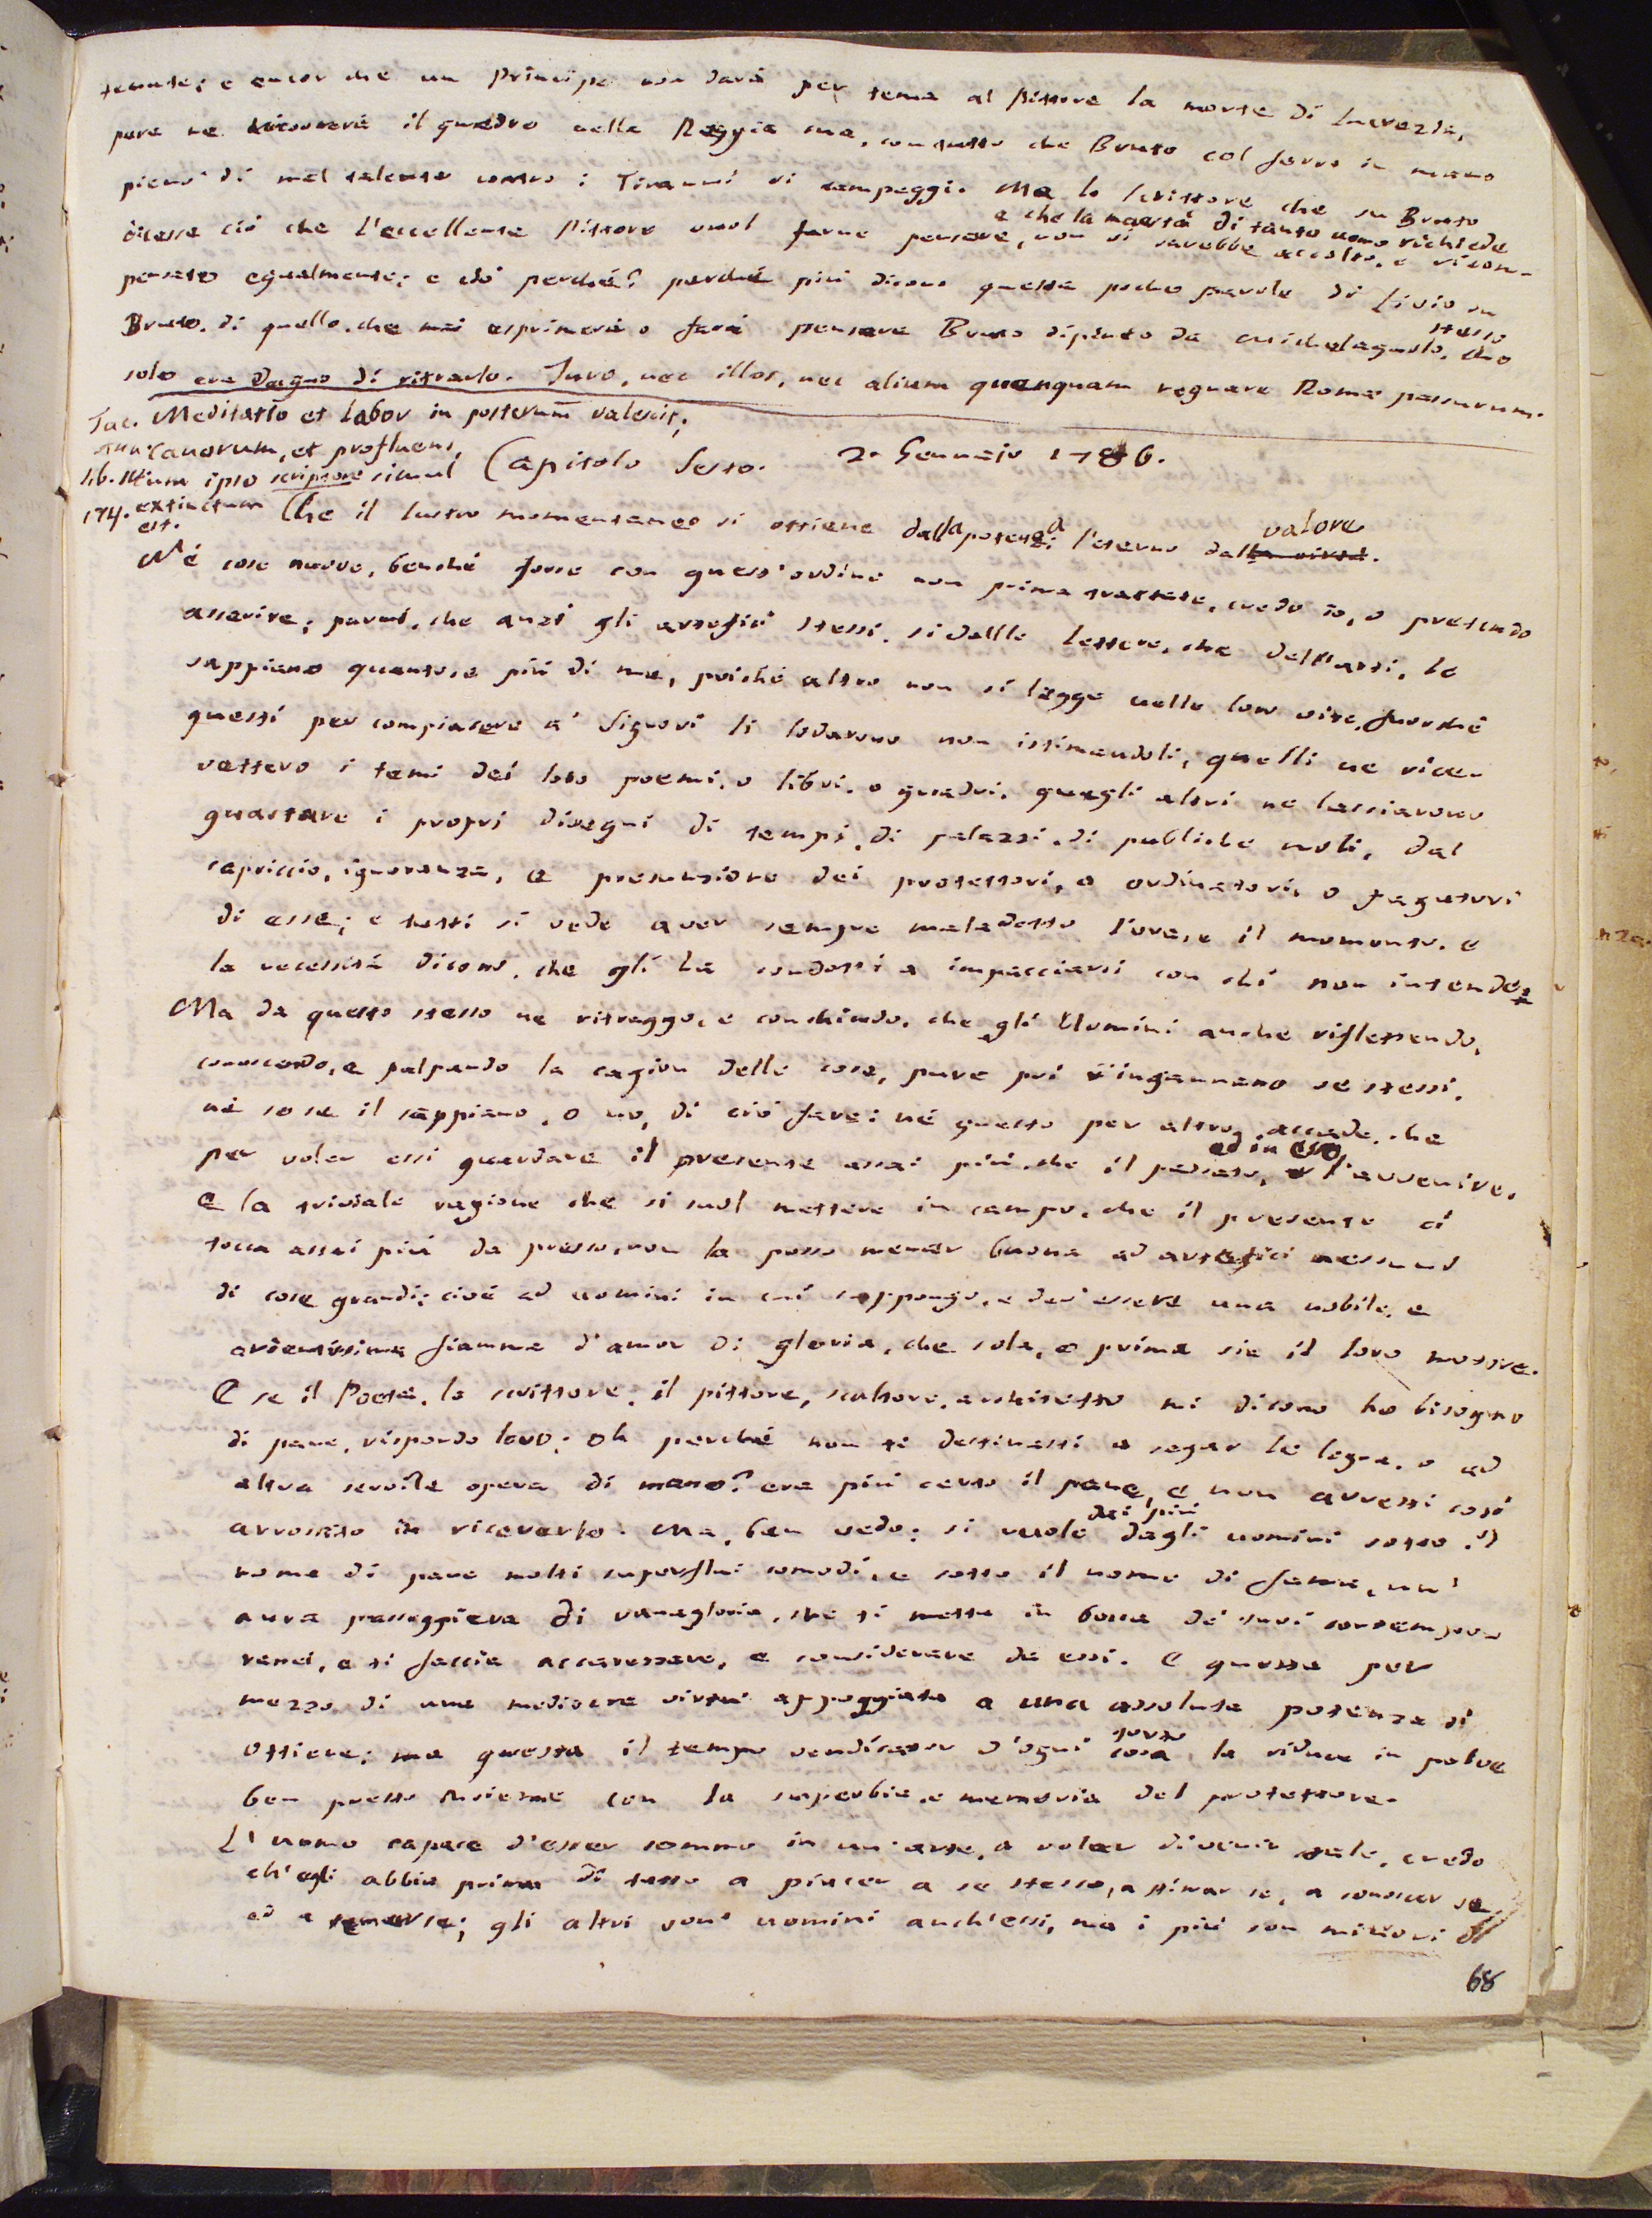 temute; e ancor che un Principe non darà per tema al Pittore la morte di Lucrezia,
pure ne riceverà il quadro nella Reggia sua, contutto che Bruto col ferro in mano
pieno di mal talento contro i Tiranni vi campeggi. Ma lo scrittore che su Bruto
e che la maestà di tanto uomo richiede
dicesse ciò che l'eccellente Pittore vuol farne pensare, non si sarebbe accolto, e ricom-
pensato egualmente; e ciò perché? perché più dicono queste poche parole di Livio su
Bruto, di quello, che mai esprimerà o farà pensare Bruto dipinto da Michelagnolo stesso, che
solo era degno di ritrarlo. Juro, nec illos, nec alium quenquam regnare Romae passurum.
Tac. Meditatio et labor in posterum valescit;
Ann. canorum, et profluens,
lib. cum ipso scriptore simul
174. extinctum
est.
Capitolo Sesto. 2. Gennaio 1786.
Che il lustro momentaneo si ottiene dalla potenza l'eterno dal valore
la virtù.
Nè cose nuove, benché forse con quest'ordine non prima trattate, credo io, o pretendo
asserire; parmi, che anzi gli artefici stessi, sì delle lettere, che dell'arti, le
sappiano quanto, e più di me, poiché altro non si legge nelle loro vite, fuorché
questi per compiacere a' Signori li lodarono non istimandoli; quelli ne rice-
vettero i temi dei loro poemi, o libri, o quadri, quegli altri ne lasciarono
guastare i propri disegni di tempi, di palazzi, di publiche moli, dal
capriccio, ignoranza, e presunzione dei protettori, o ordinatori, o pagatori
di esse; e tutti si vede aver sempre maledetto l'ora, e il momento, e
la necessità dicono, che gli ha condotti a impacciarsi con chi non intende.
Ma da questo stesso ne ritraggo, e conchiudo, che gli Uomini anche riflettendo,
conoscendo, e palpando la cagion delle cose, pure poi ingannano se stessi,
né so se il sappiano, o no, di ciò fare: né questo per altro accade, che
ed in esso
per voler essi guardare il presente assai più, che il passato, e l'avvenire.
E la triviale ragione che si suol mettere in campo, che il presente ci
tocca assai più da presso, non la posso menar buona ad artefici nessuni
di cose grandi; cioè ad uomini in cui suppongo, e dev'essere una nobile, e
ardentissima fiamma d'amor di gloria, che sola, e prima sia il loro motore.
E se il Poeta, lo scrittore, il pittore, scultore, architetto mi dicono ho bisogno
di pane, rispondo loro: Oh perché non ti destinasti a segar le legna, o ad
altra servile opera di mano? era più certo il pane, e non avresti così
dei più
arrossito in riceverlo. Ma, ben vedo; si vuole dagli uomini sotto il
nome di pane molti superflui comodi, e sotto il nome di fama, un'
aura passeggiera di vanagloria, che ti metta in bocca de' tuoi contempo-
ranei, e ti faccia accarezzare, e considerare da essi. E questa per
mezzo di una mediocre virtù appoggiata a una assoluta potenza si
torto
ottiene; ma questa il tempo vendicator d'ogni cosa, la riduce in polve
ben presto insieme con la superbia, e memoria del protettore.
L'uomo capace d'esser sommo in un'arte, a voler divenir tale, credo
ch'egli abbia prima di tutto a piacer a se stesso, a stimar se, a conoscer se,
ed a temer se; gli altri son' uomini anch'essi, ma i più son minori di
68